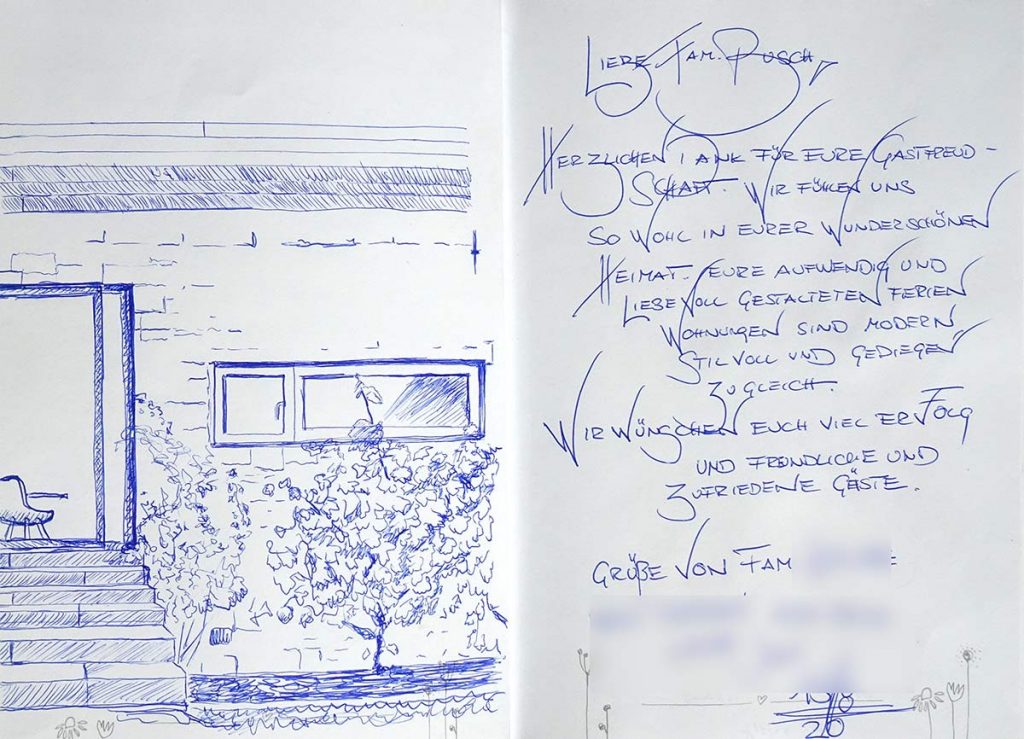 LIEBE FAM. PUSCH,
HERZLICHEN DANK FÜR EURE GASTFREUD-
SCHAFT. WIR FÜHLEN UNS
SO WOHL IN EURER WUNDERSCHÖNEN
HEIMAT. EURE AUFWENDIG UND
LIEBEVOLL GESTALTETEN FERIEN
WOHNUNGEN SIND MODERN,
STILVOLL UND GEDIEGEN
ZUGLEICH.
WIR WÜNSCHEN EUCH VIEL ERFOLG
UND FREUNDLICHE UND
ZUFRIEDENE GÄSTE.
GRÜßE VON FAM
20